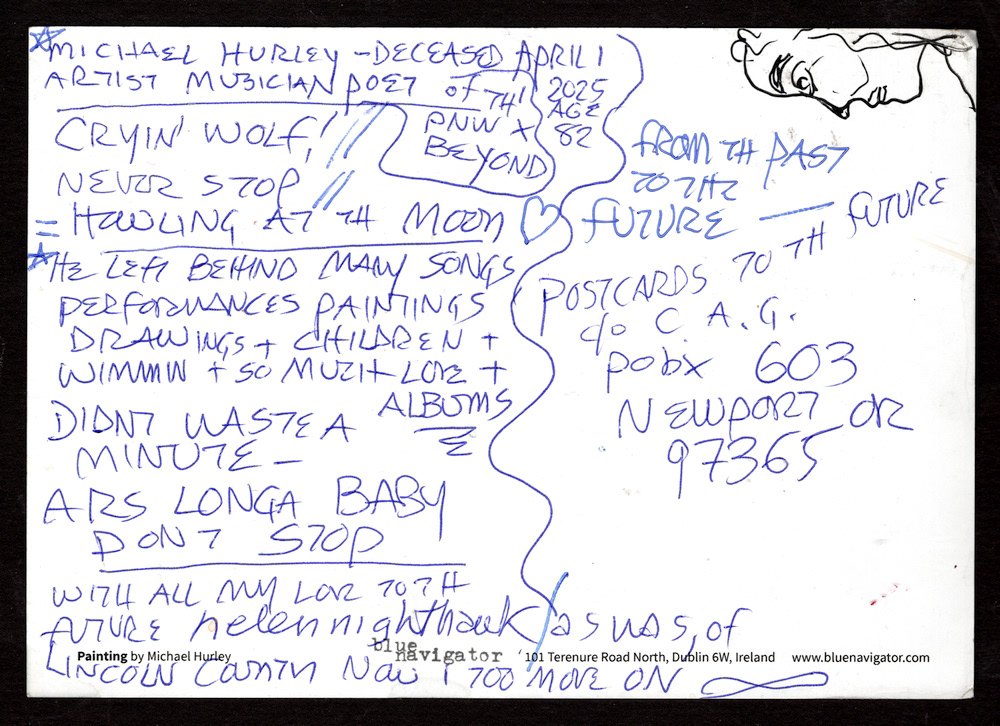 MICHAEL HURLEY - DECEASED APRIL 1
ARTIST MUSICIAN POET OF TH'
2025
AGE
82
PNW X
BEYOND
CRYIN' WOLF!
NEVER STOP
= HOWLING AT TH MOON
HE LEFT BEHIND MANY SONGS
PERFORMANCES PAINTINGS
DRAWINGS + CHILDREN +
WIMMIN + SO MUCH LOVE +
ALBUMS
DIDNT WASTE A
MINUTE -
ARS LONGA BABY
DONT STOP
WITH ALL MY LOVE TO TH
FUTURE helen nighthawk / as was, of
LINCOLN COUNTY NOW I TOO MOVE ON
FROM TH PAST
TO THE
FUTURE —
POSTCARDS TO TH FUTURE
c/o C A.G.
pobx 603
NEWPORT OR
97365
Painting by Michael Hurley
blue
navigator
101 Terenure Road North, Dublin 6W, Ireland www.bluenavigator.com